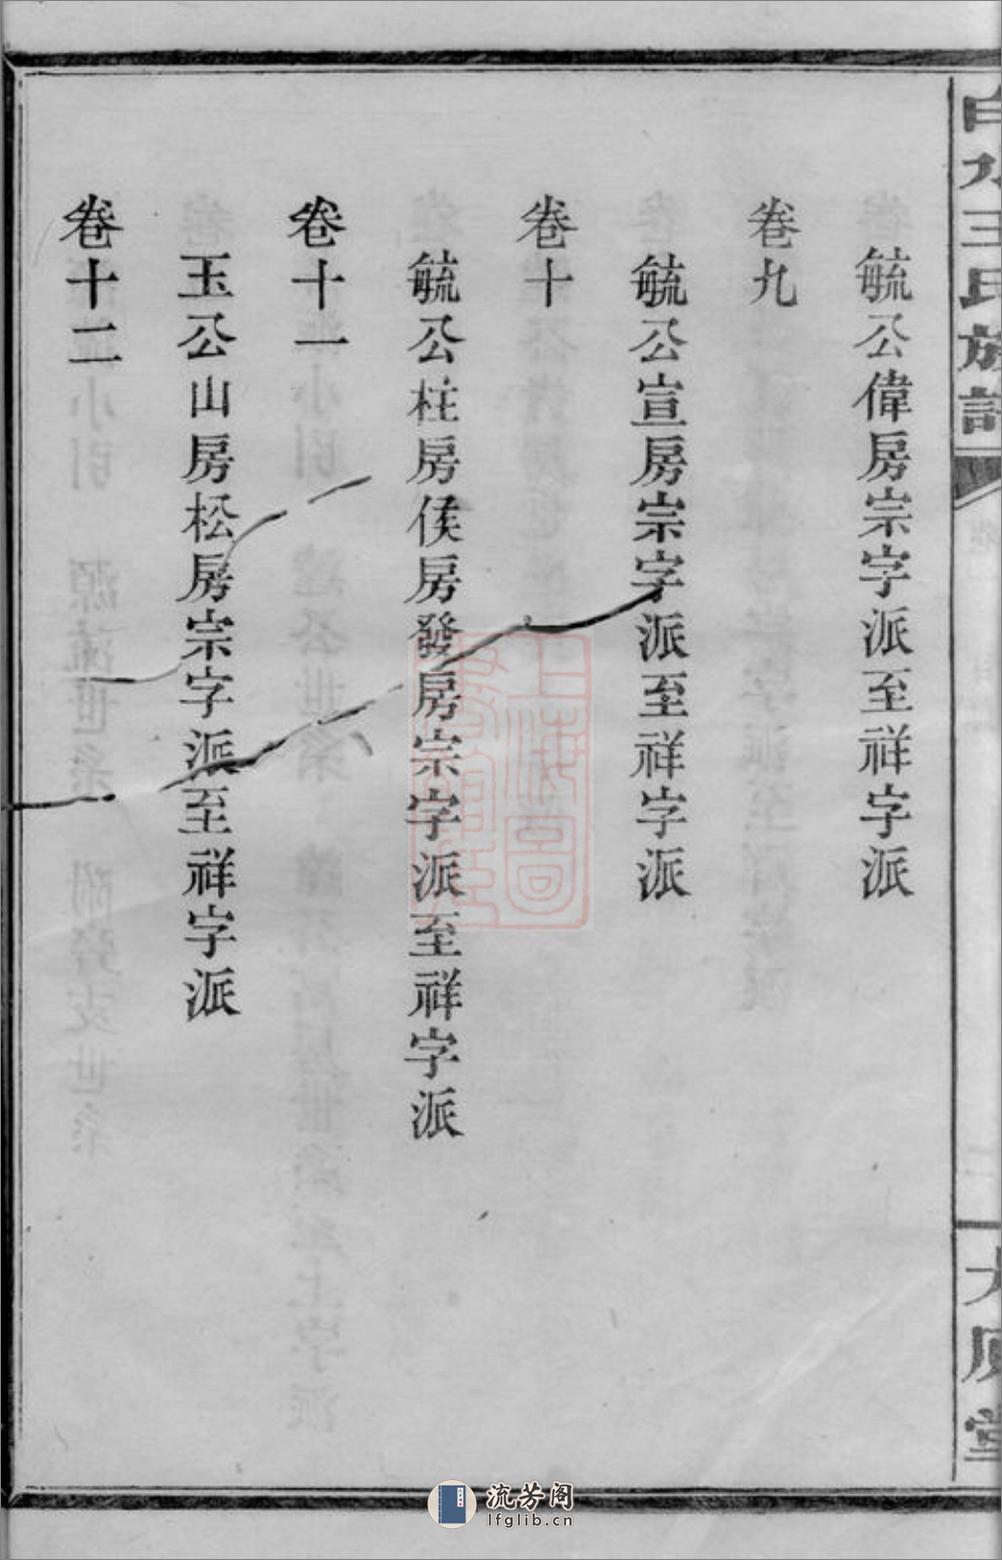 白水王氏族譜
大原堂
毓公偉房宗字派至祥字派
卷九
毓公宣房宗字派至祥字派
卷十
毓公柱房侯房發房宗字派至祥字派
卷十一
玉公山房松房宗字派至祥字派
卷十二
流芳阁
lfglib.cn